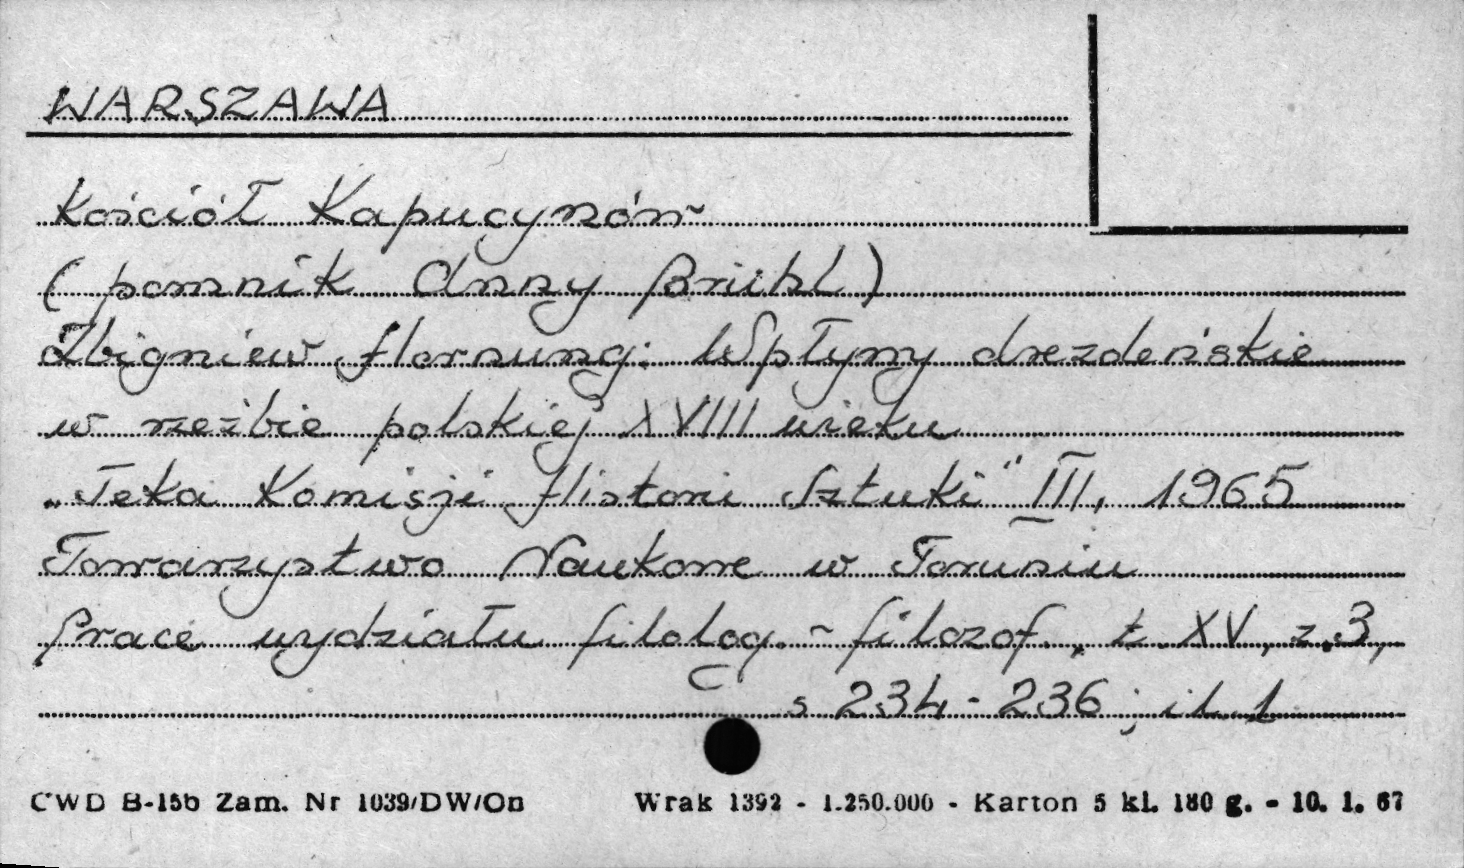 WARSZAWA
Kościół Kapucynów
( pomnik Anny Brühl )
Zbigniew Hornung: Wpływy drezdeńskie
w rzeźbie polskiej XVIII wieku
„Teka Komisji Historii Sztuki" III, 1965
Towarzystwo Naukowe w Toruniu
Prace wydziału filolog. - filozof., t. XV, z.3,
s 234 - 236 ; il. 1
CWD B-15b Zam. Nr 1039/DW/On Wrak 1392 - 1.250.000 - Karton 5 kl. 180 g. - 10. 1. 67